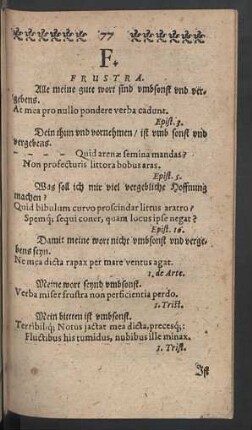 77
F.
FRUSTRA.
Alle meine gute wort sind vmbsonst vnd ver-
gebens.
At mea pro nullo pondere verba cadunt.
Epist. 3.
Dein thun vnd vornehmen / ist vmb sonst vnd
vergebens.
- - - - Quid arenæ semina mandas?
Non profecturis littora bobus aras.
Epist. 5.
Was soll ich mir viel vergebliche Hoffnung
machen?
Quid bibulum curvo proscindar littus aratro/
Spemq; sequi coner, quam locus ipse negat?
Epist. 16.
Damit meine wort nicht vmbsonst vnd verge-
bens seyn.
Ne mea dicta rapax per mare ventus agat.
1. de Arte.
Meine wort seynd vmbsonst.
Verba miser frustra non perficientia perdo.
1. Trist.
Mein bitten ist vmbsonst.
Terribiliq; Notus jactat mea dicta, precesq;:
Fluctibus his tumidus, nubibus ille minax.
1. Trist.
Ist